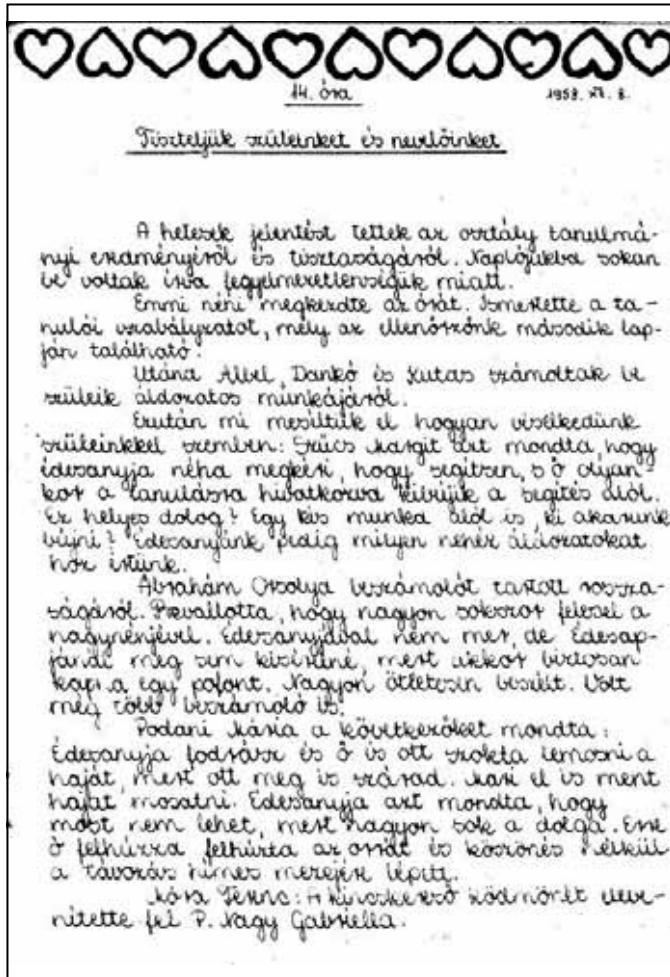 14. óra
1959. XII. 8.
Tiszteljük szüleinket és nevelőinket
A hetesek jelentést tettek az osztály tanulmá-
nyi eredményéről és tisztaságáról. Naplójukba sokan
be voltak írva fegyelmezetlenségük miatt.
Emmi néni megkezdte az órát. Ismertette a ta-
nulói szabályzatot, mely az ellenőrzőnk második lap-
ján található.
Utána Albel, Dankó és Kutas számoltak be
szüleik áldozatos munkájáról.
Ezután mi meséltük el hogyan viselkedünk
szüleinkkel szemben: Szűcs Margit azt mondta, hogy
édesanyja néha megkéri, hogy segítsen, s ő olyan-
kor a tanulásra hivatkozva kibújik a segítés alól.
Ez helyes dolog? Egy kis munka alól is ki akarunk
bújni? Édesanyánk pedig milyen nehéz áldozatokat
hoz értünk.
Ábrahám Orsolya beszámolót tartott rossza-
ságáról. Bevallotta, hogy nagyon sokszor felesel a
nagynénjével. Édesanyjával nem mer, de Édesap-
jánál meg sem kísérelné, mert akkor biztosan
kapna egy pofont. Nagyon ötletesen beszélt. Volt
még több beszámoló is.
Podani Mária a következőket mondta:
Édesanyja fodrász és ő is ott szokta lemosni a
haját, mert ott meg is szárad. Mari el is ment
haját mosatni. Édesanyja azt mondta, hogy
most nem lehet, mert nagyon sok a dolga. Erre
ő felhúzza felhúzta az orrát és köszönés nélkül
a távozás hímes mezejére lépett.
Móra Ferenc: A kincskereső ködmönét eleve-
nítette fel P. Nagy Gabriella.